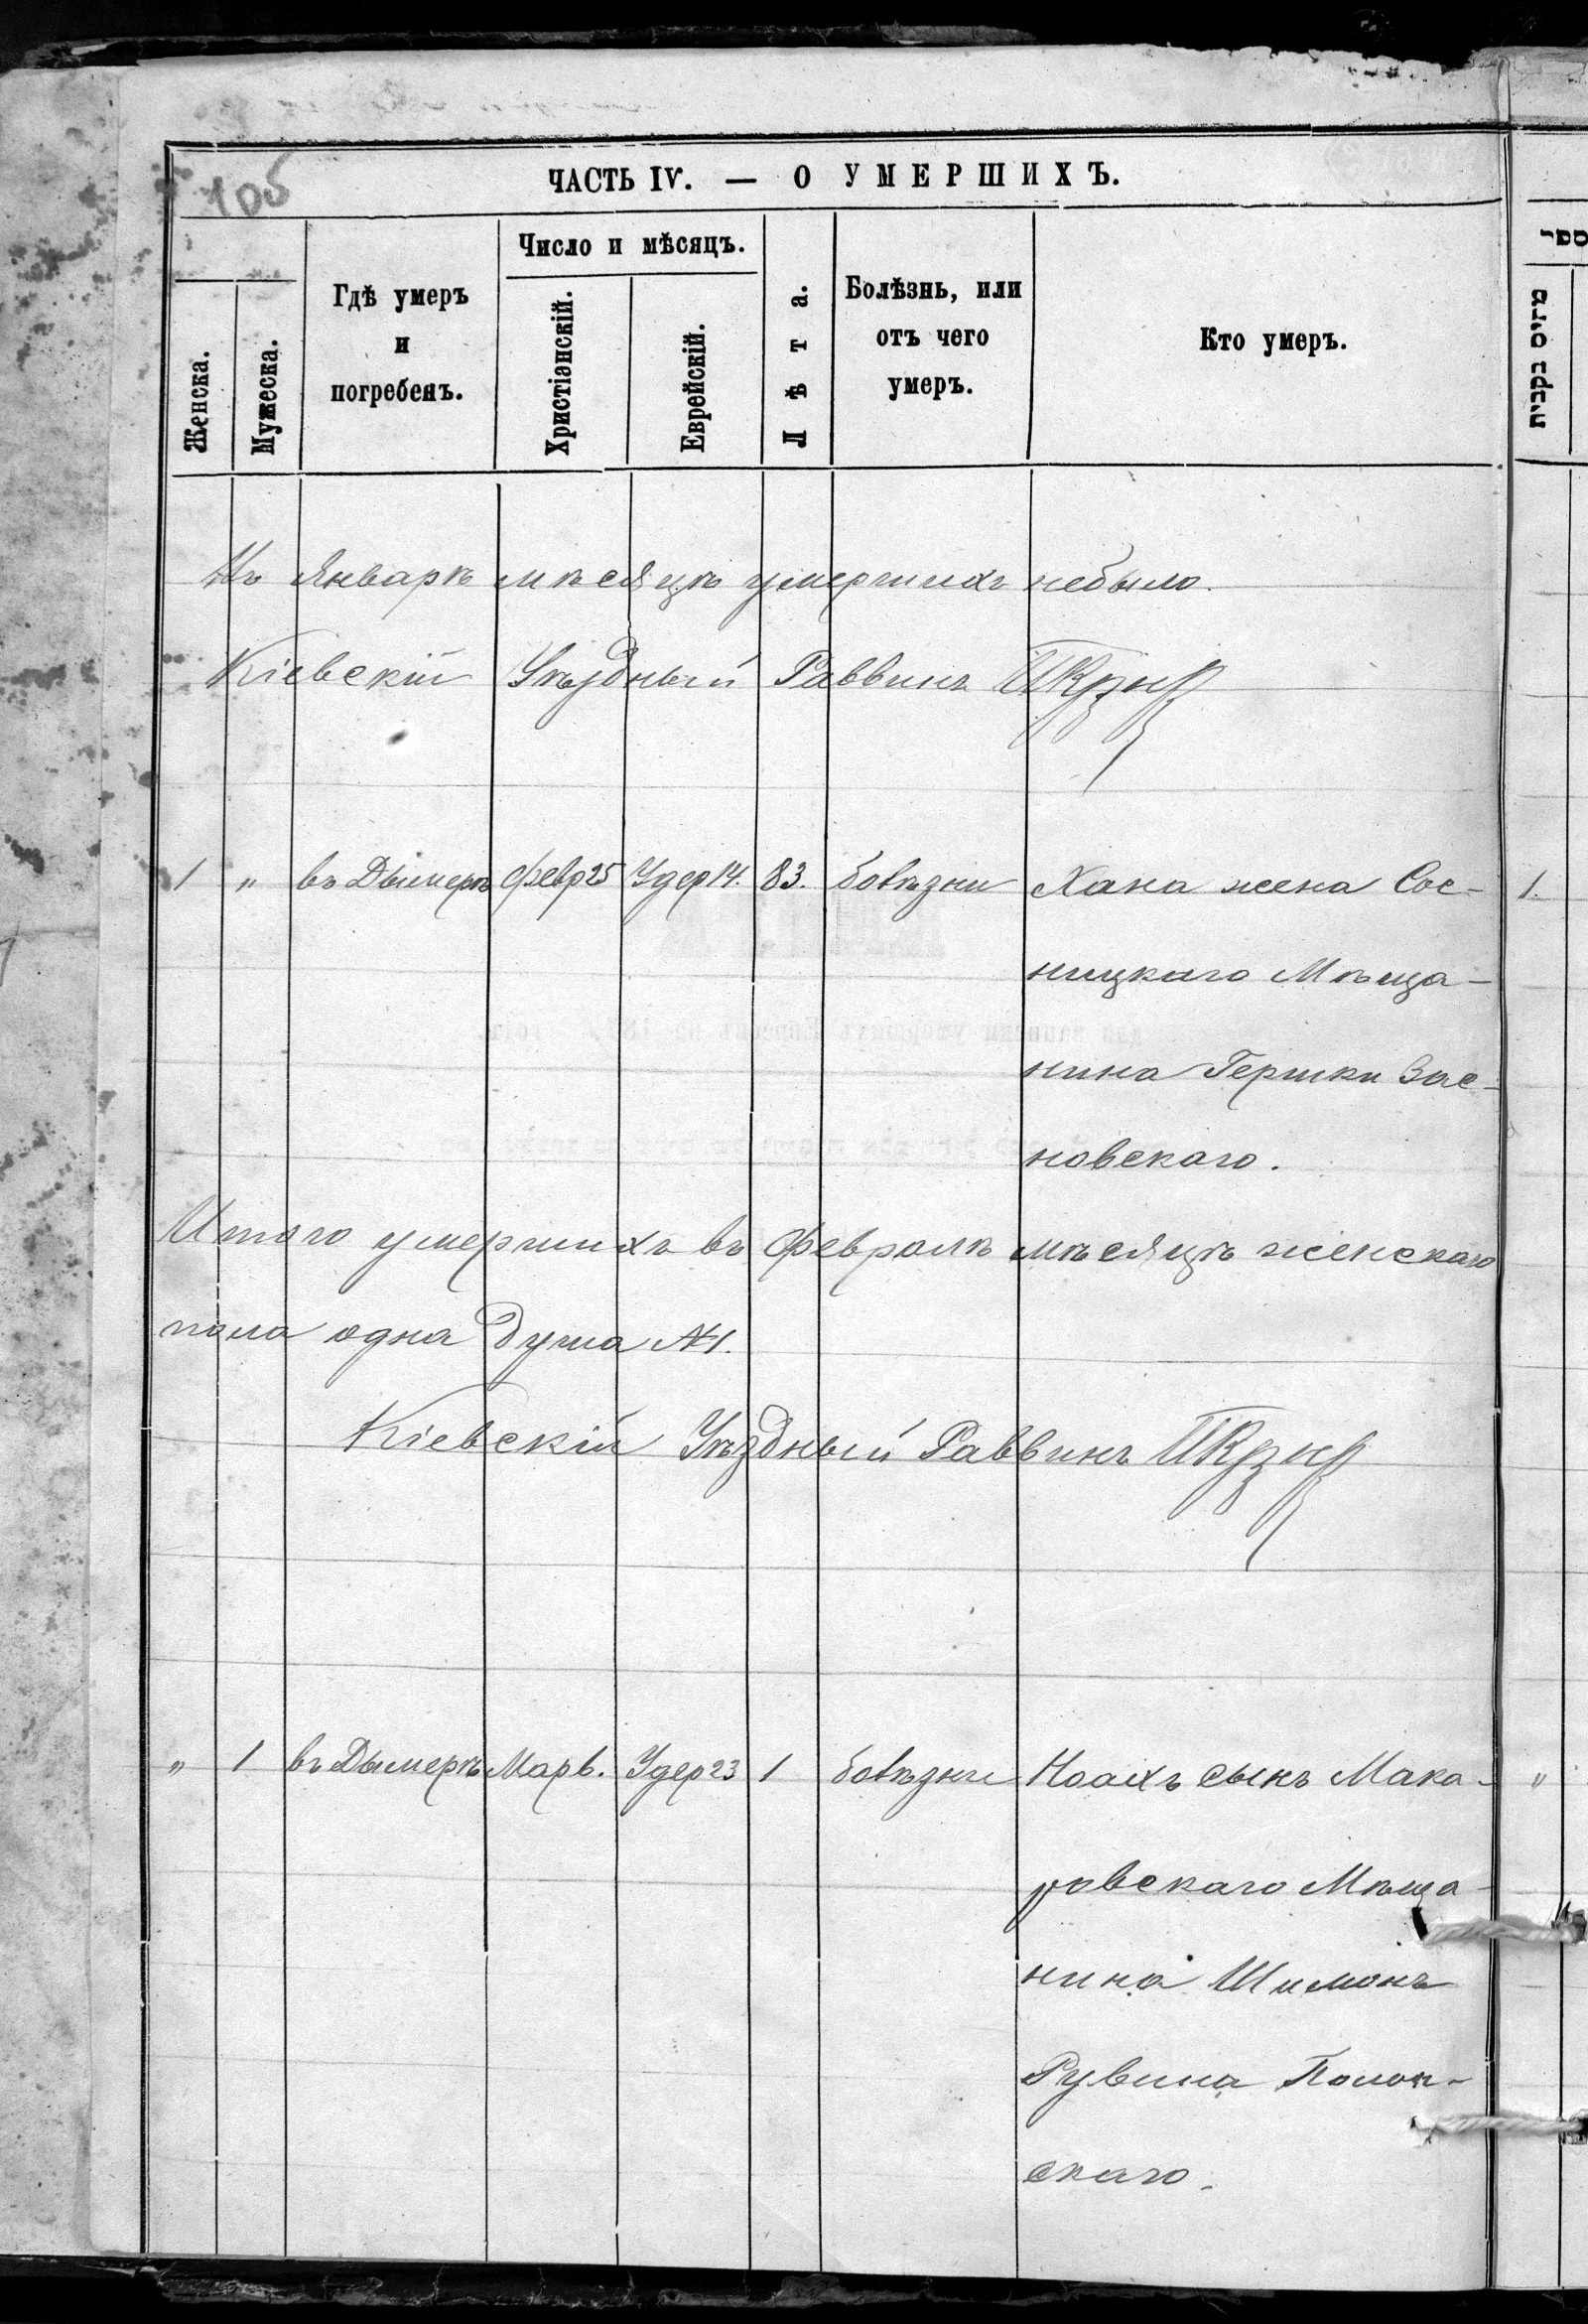 105
ЧАСТЬ IV. — О УМЕРШИХЪ.
Женска.
Мужеска.
Гдѣ умеръ
и
погребенъ.
Число и мѣсяцъ.
Христіэнскій.
Еврейскій.
Лѣта.
Болѣзнь, или
отъ чего
умеръ.
Кто умеръ.
ספר
מזים בקבית
Въ Январѣ мѣсяцѣ умершихъ небыло.
Кіевскій Уѣздный Раввинъ
1 " въ Дымерѣ Февр 25 Удер 14. 83. болѣзни Хана жена Сос- 1.
ницкаго Мѣща-
нина Гершки Зас-
новскаго.
Итого умершихъ въ Февралѣ мѣсяцѣ женскаго
пола одна душа №1.
Кіевскій Уѣздный Раввинъ
" 1 въ Дымерѣ Мар 6. Удер 23 1 болѣзни Ноахъ сынъ Мака- "
ровскаго Мѣща-
нина Шимонъ
Рувина Полон-
скаго.